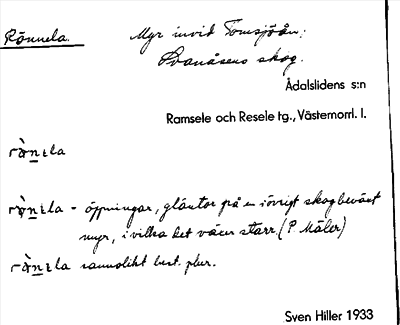 Rönnela. Myr invid Tomsjöån;
Svanåsens skog.
Ådalslidens s:n
Ramsele och Resele tg., Västernorrl. l.
rö̀nɛla
rö̀nɛla - öppningar, gläntor på en i övrigt skogbeväxt
myr, i vilka det växer starr. (P. Mäler)
rö̀nɛla sannolikt best. plur.
Sven Hiller 1933